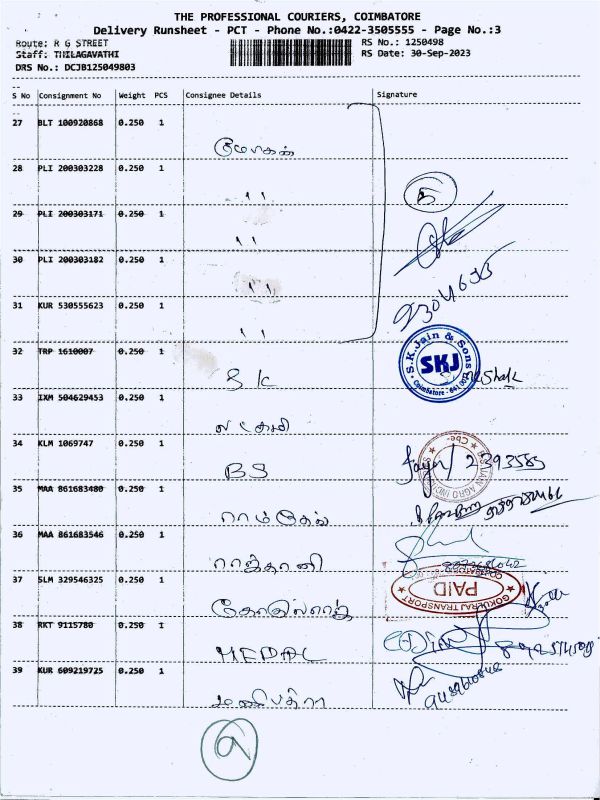 THE PROFESSIONAL COURIERS, COIMBATORE
Delivery Runsheet - PCT - Phone No.:0422-3505555 - Page No.:3
Route: R G STREET RS No.: 1250498
Staff: THILAGAVATHI RS Date: 30-Sep-2023
DRS No.: DCJB125049803
S No Consignment No Weight PCS Consignee Details Signature
27 BLT 100920868 0.250 1
28 PLI 200303228 0.250 1
" 5
29 PLI 200303171 0.250 1
"
30 PLI 200303182 0.250 1
"
31 KUR 530555623 0.250 1
"
32 TRP 1610007 0.250 1
S.K.Jain & Sons
SKJ
Coimbatore - 641 001
SK
33 IXM 504629453 0.250 1
லட்சுமி
34 KLM 1069747 0.250 1
BS
35 MAA 861683480 0.250 1
ராம்தேவ்
36 MAA 861683546 0.250 1
ராஜ்தானி
37 SLM 329546325 0.250 1
GOKULRAJ TRANSPORT
PAID
கோகுல்ராஜ்
38 RKT 9115780 0.250 1
MEDAL
39 KUR 609219725 0.250 1
மணிபத்ரா
9